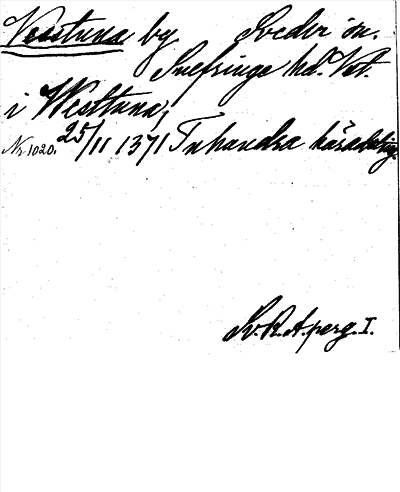 Veastuna by Svedvi sn.
Snefringe hd. Vst.
i Westtuna,
Nr 1020. 25/11 1371 Tuhundra häradsting.
Sv. R. A. perg. I.